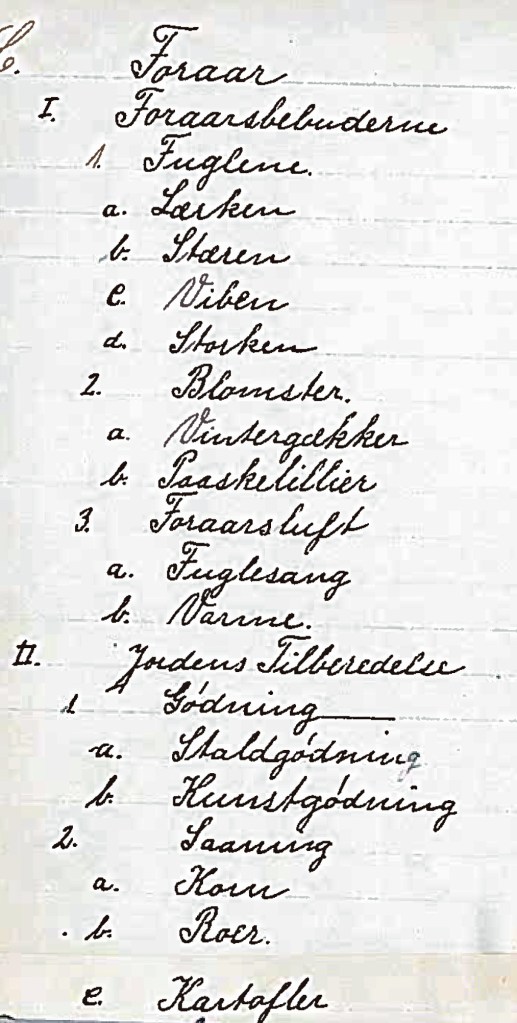 C. Foraar
I. Foraarsbebuderne
1. Fuglene.
a. Lærken
b. Stæren
c. Viben
d. Storken
2. Blomster.
a. Vintergækker
b. Paaskelillier
3. Foraarsluft
a. Fuglesang
b. Varme.
II. Jordens Tilberedelse
1 Gódning
a. Staldgódning
b. Kunstgódning
2. Saaning
a. Korn
b. Roer.
c. Kartofler